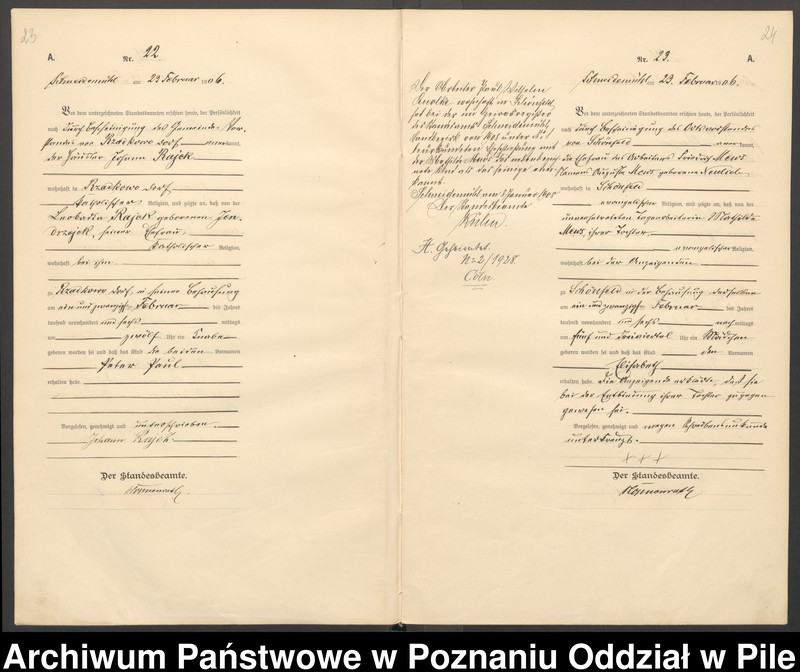 23
A.
Nr. 22.
Schneidemühl am 23 Februar 1906.
Vor dem unterzeichneten Standesbeamten erschien heute, der Persönlichkeit
nach durch Bescheinigung des Gemeinde-Vor-
standes von Rzadkowo Dorf kannt,
der Häusler Johann Rajek
wohnhaft in Rzadkowo Dorf
katholischer Religion, und zeigte an, daß von der
Leokadia Rajek geborenen Jen-
drzejek, seiner Ehefrau,
katholischer Religion,
wohnhaft bei ihm
zu Rzadkowo Dorf, in seiner Behausung
am ein und zwanzigsten Februar des Jahres
tausend neunhundert und sechs mittags
um zwölf Uhr ein Knabe
geboren worden sei und daß das Kind die beiden Vornamen
Peter Paul
erhalten habe.
Vorgelesen, genehmigt und unterschrieben
Johann Rajek
Der Standesbeamte.
24
Der Arbeiter Paul Wilhelm
wohnhaft in Schönfeld,
hat bei der im Heiratsregister
des Standesamts Schneidemühl
unter
beurkundeten Eheschließung mit
der Mathilde Mews das nebenbezeich-
nete Kind als das seinige aner-
kannt.
Schneidemühl, am Januar
Der Standesbeamte
H. Geheiratet
N=2/1928
Cöln
Nr. 23.
A.
Schneidemühl am 23. Februar 1906.
Vor dem unterzeichneten Standesbeamten erschien heute, der Persönlichkeit
nach durch Bescheinigung des Ortsvorstandes
von Schönfeld kannt,
die Ehefrau des Arbeiters Friedrich Mews
Namens Auguste Mews geborene
wohnhaft in Schönfeld
evangelischer Religion, und zeigte an, daß von der
unverheirateten Tagearbeiterin Mathilde
Mews, ihrer Tochter,
evangelischer Religion,
wohnhaft bei der Anzeigenden
zu Schönfeld in der Behausung derselben
am ein und zwanzigsten Februar des Jahres
tausend neunhundert und sechs nachmittags
um fünf und dreiviertel Uhr ein Mädchen
geboren worden sei und daß das Kind den Vornamen
Elisabeth
erhalten habe. Die Anzeigende erklärte, daß sie
bei der Entbindung ihrer Tochter zugegen
gewesen sei.
Vorgelesen, genehmigt und wegen Schreibensunkunde
unterkreuzt.
+ + +
Der Standesbeamte.
Archiwum Państwowe w Poznaniu Oddział w Pile